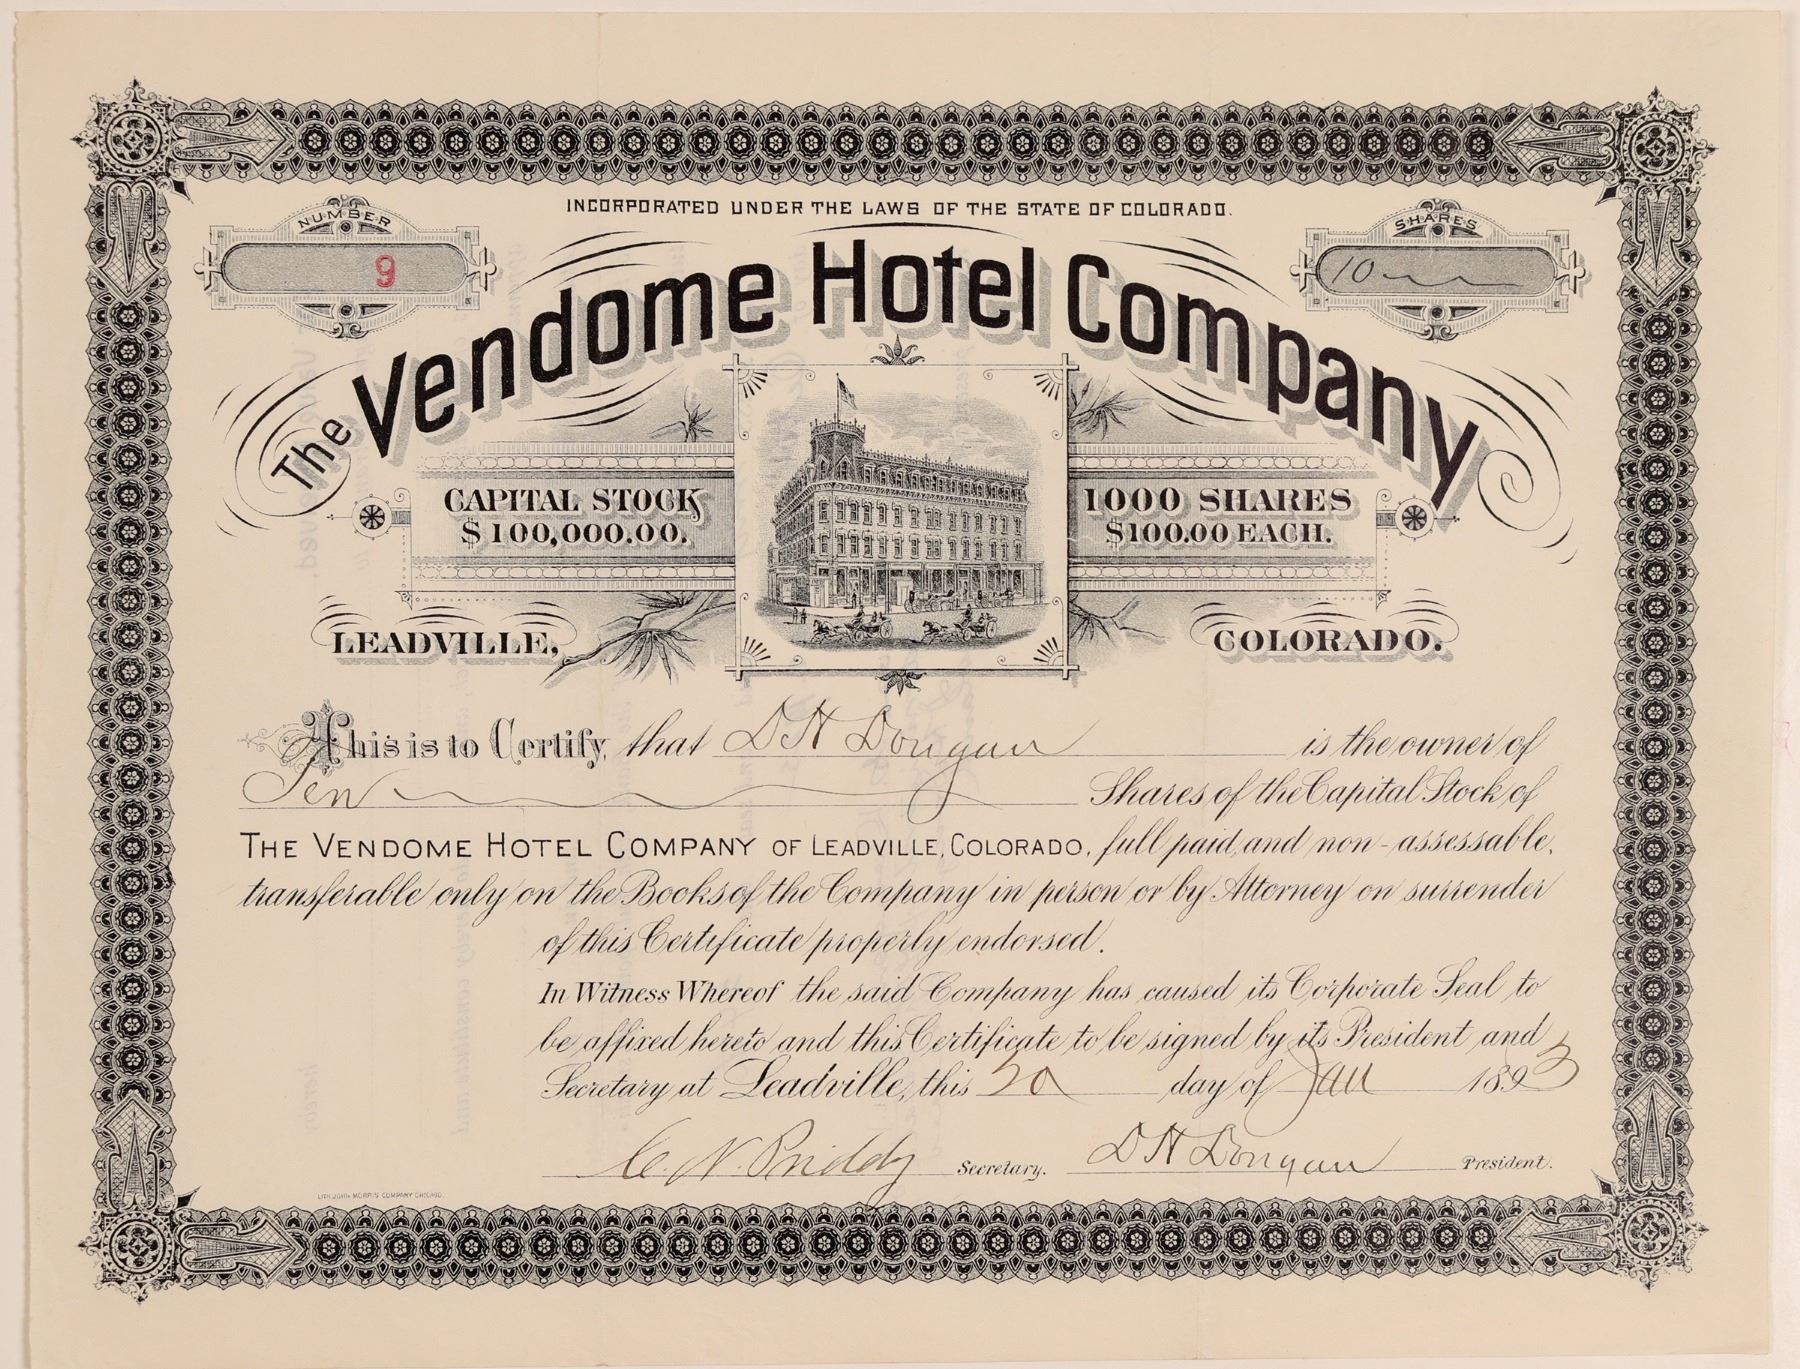 INCORPORATED UNDER THE LAWS OF THE STATE OF COLORADO.
NUMBER
9
SHARES
10
The Vendome Hotel Company
CAPITAL STOCK
$100,000.00.
1000 SHARES
$100.00 EACH.
LEADVILLE,
COLORADO.
This is to Certify, that D H Dougan is the owner of
Ten Shares of the Capital Stock of
THE VENDOME HOTEL COMPANY OF LEADVILLE, COLORADO, full paid, and non-assessable,
transferable only on the Books of the Company in person or by Attorney on surrender
of this Certificate properly endorsed.
In Witness Whereof the said Company has caused its Corporate Seal to
be affixed hereto and this Certificate to be signed by its President and
Secretary at Leadville, this day of Jan 1893
C. N. Priddy Secretary. D H Dougan President.
LITH. JOHN MORRIS COMPANY CHICAGO.